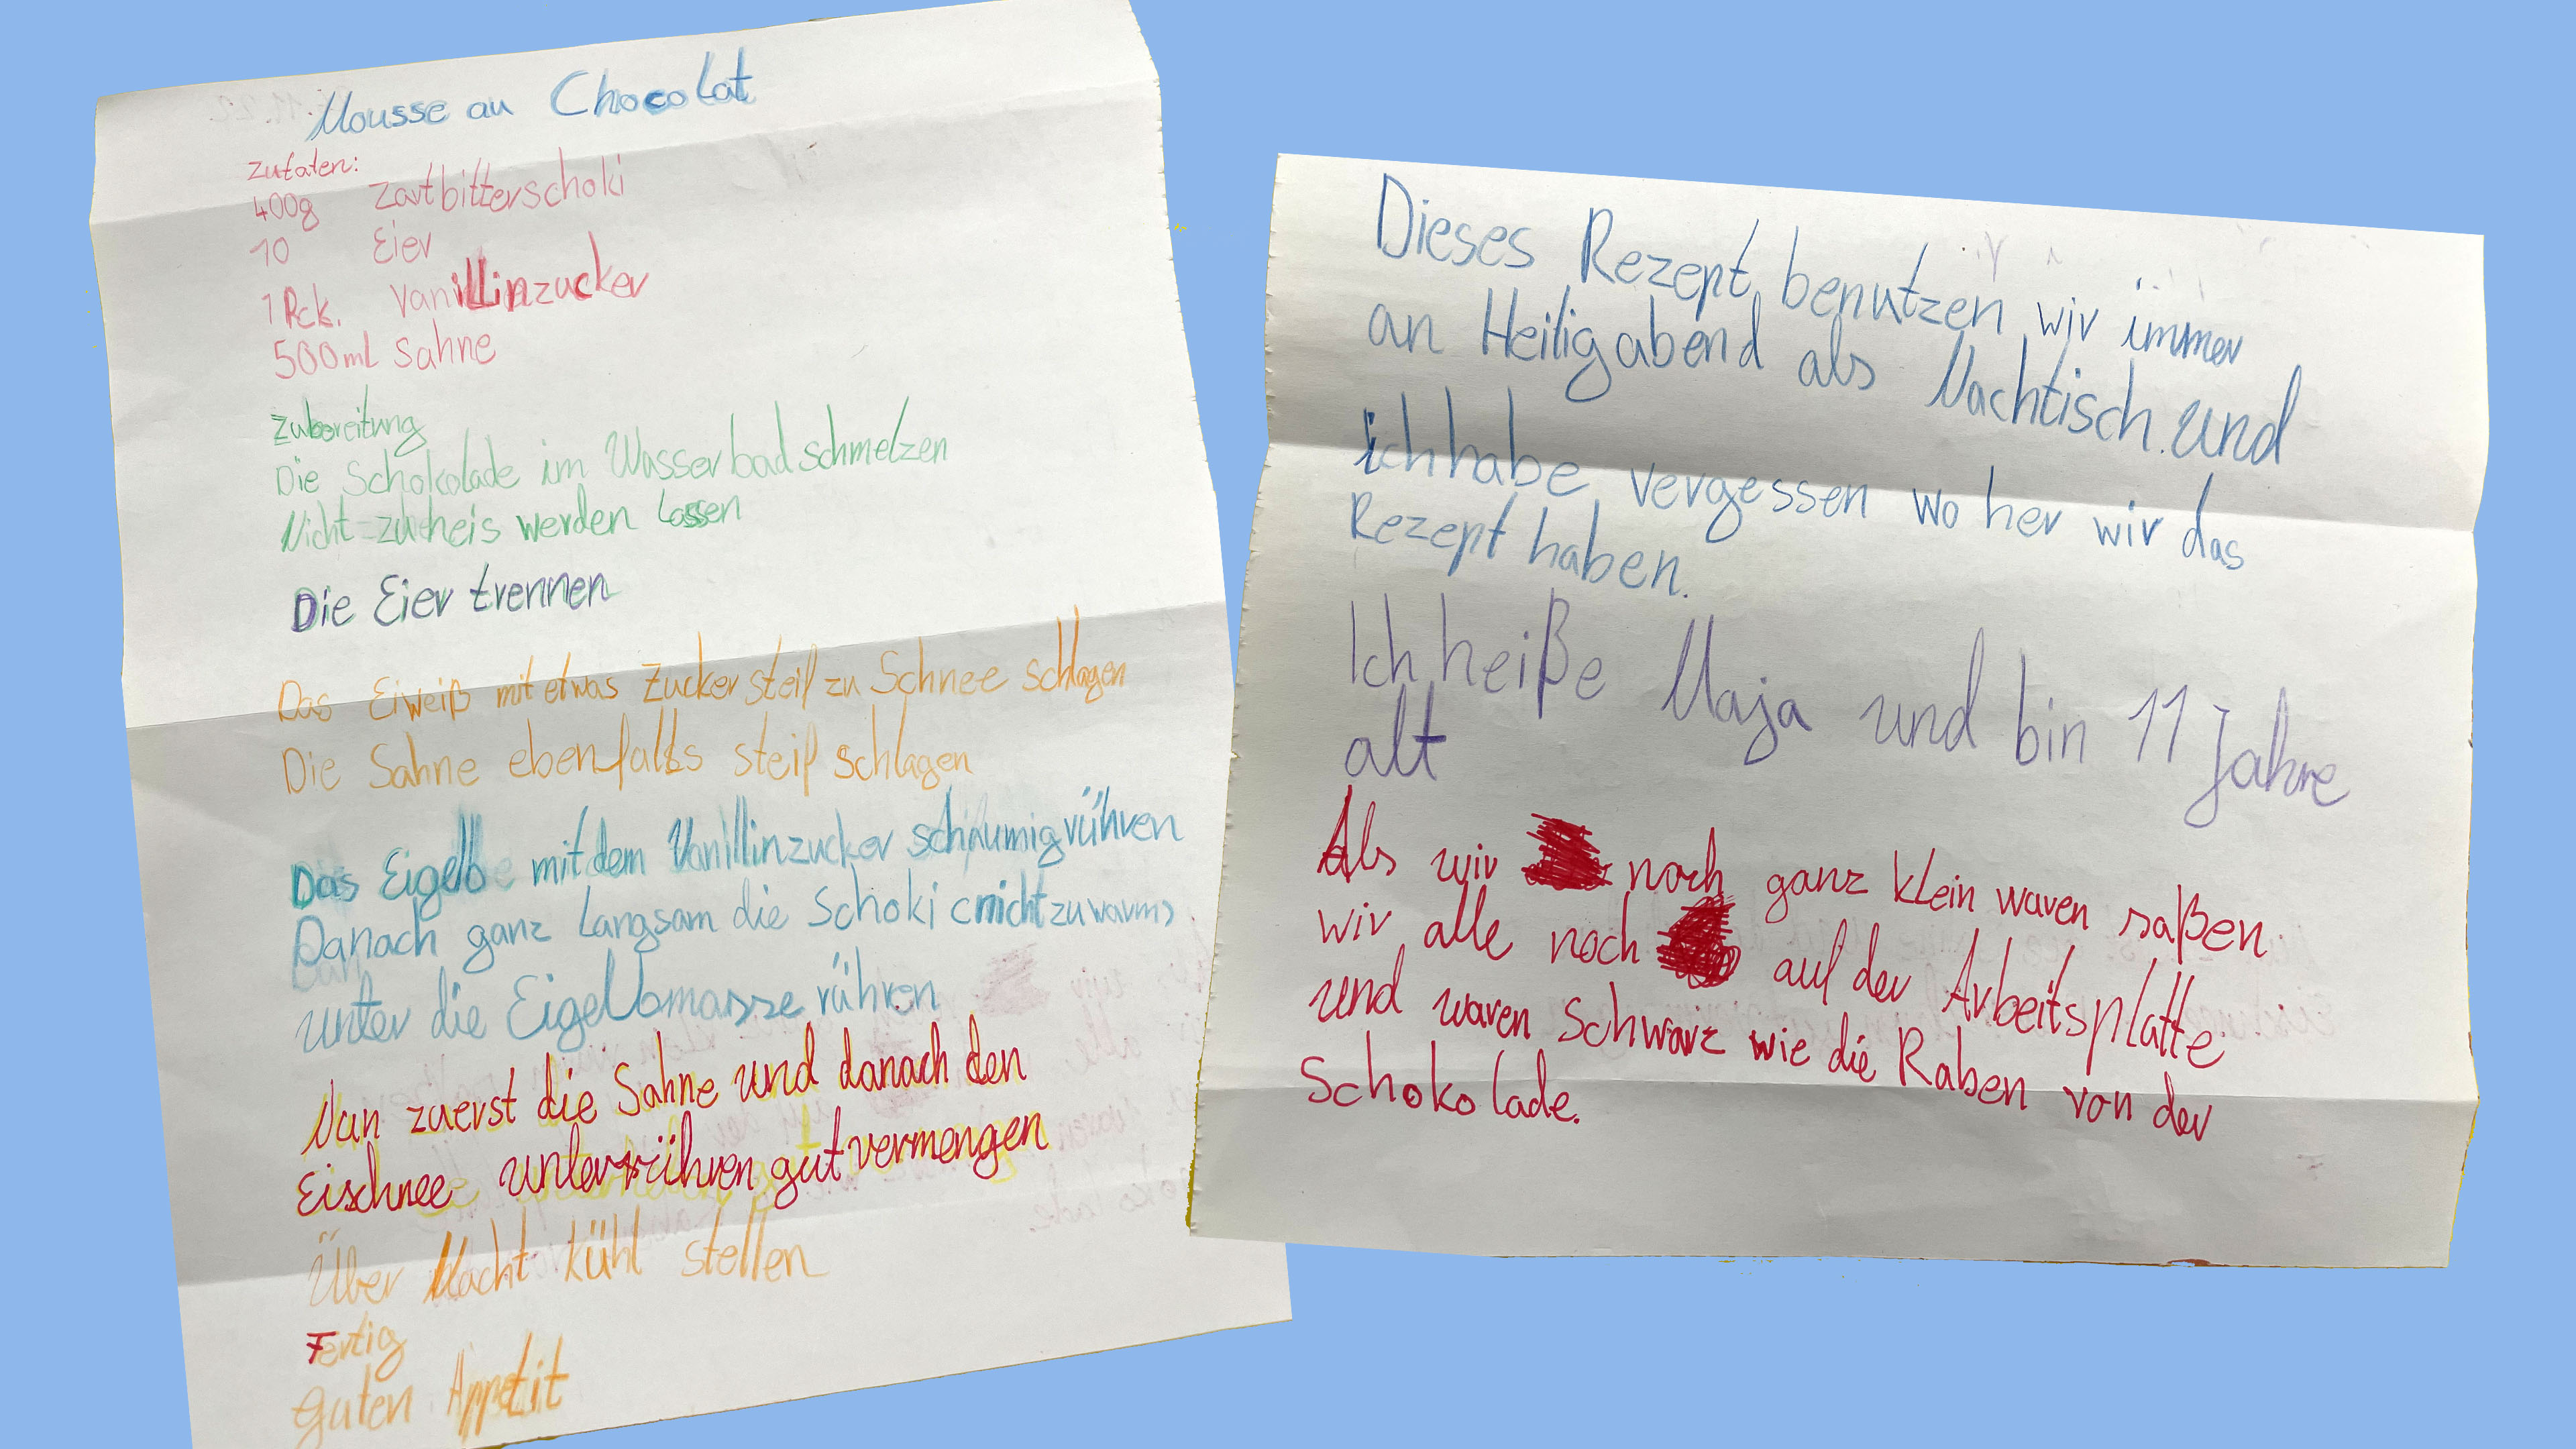 Mousse au Chocolat
Zutaten:
400g Zartbitterschoki
10 Eier
1 Pck. Vanillinzucker
500ml Sahne
Zubereitung
Die Schokolade im Wasserbad schmelzen
Nicht zu heis werden lassen
Die Eier trennen
Das Eiweiß mit etwas Zucker steif zu Schnee schlagen
Die Sahne ebenfalls steif schlagen
Das Eigelb mit dem Vanillinzucker schaumig rühren
Danach ganz langsam die Schoki (nicht zu warm)
unter die Eigelbmasse rühren
Nun zuerst die Sahne und danach den
Eischnee unterrühren gut vermengen
Über Nacht kühl stellen
Fertig
guten Appetit
Dieses Rezept benutzen wir immer
an Heiligabend als Nachtisch. und
ich habe vergessen wo her wir das
Rezept haben.
Ich heiße Maja und bin 11 Jahre
alt
Als wir noch ganz klein waren saßen
wir alle noch auf der Arbeitsplatte
und waren schwarz wie die Raben von der
Schokolade.